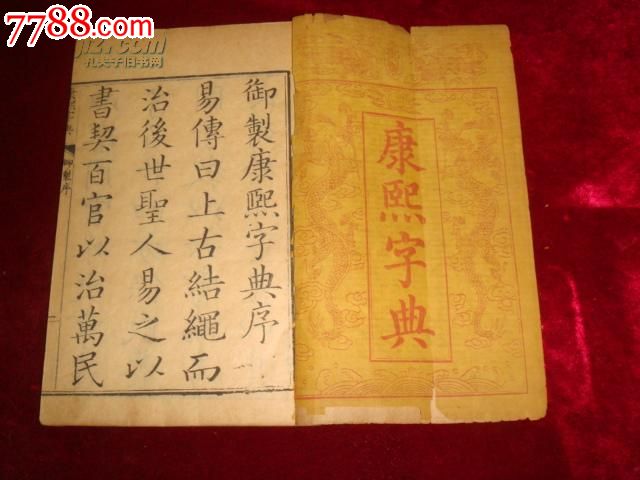 康熙字典
御製康熙字典序
易傳曰上古結繩而
治後世聖人易之以
書契百官以治萬民
御製序
7788.com
孔夫子旧书网